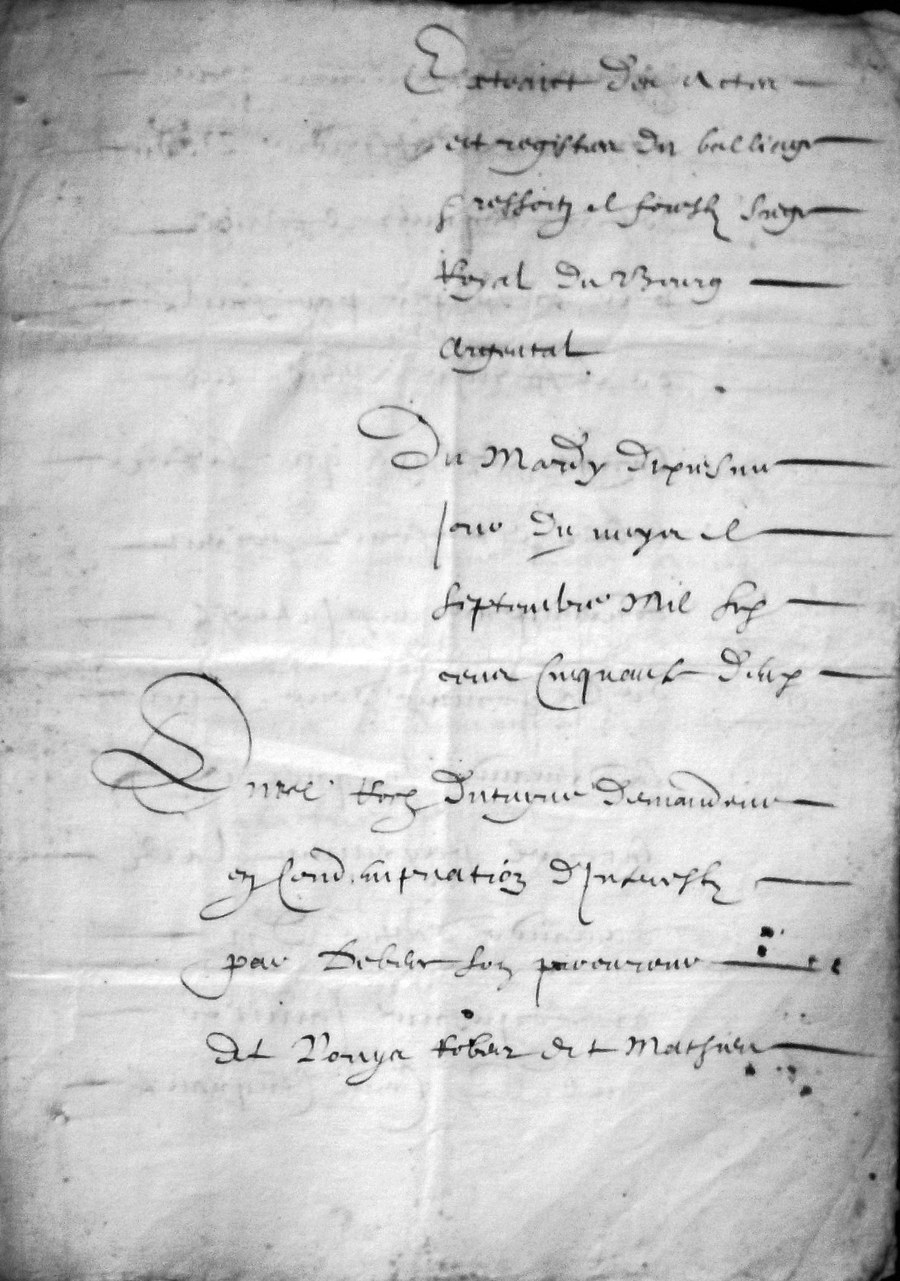 Extraict des actes
et registres du balliage
ressortz et fourestz siege
Royal du Bourg
argental
Du Mardy dixiesme
jour du moys de
septembre Mil six
cens cinquante deux
Entre Roch Duteyne demandeur
en condampnation d'interestz
par son procureur
et Mathieu